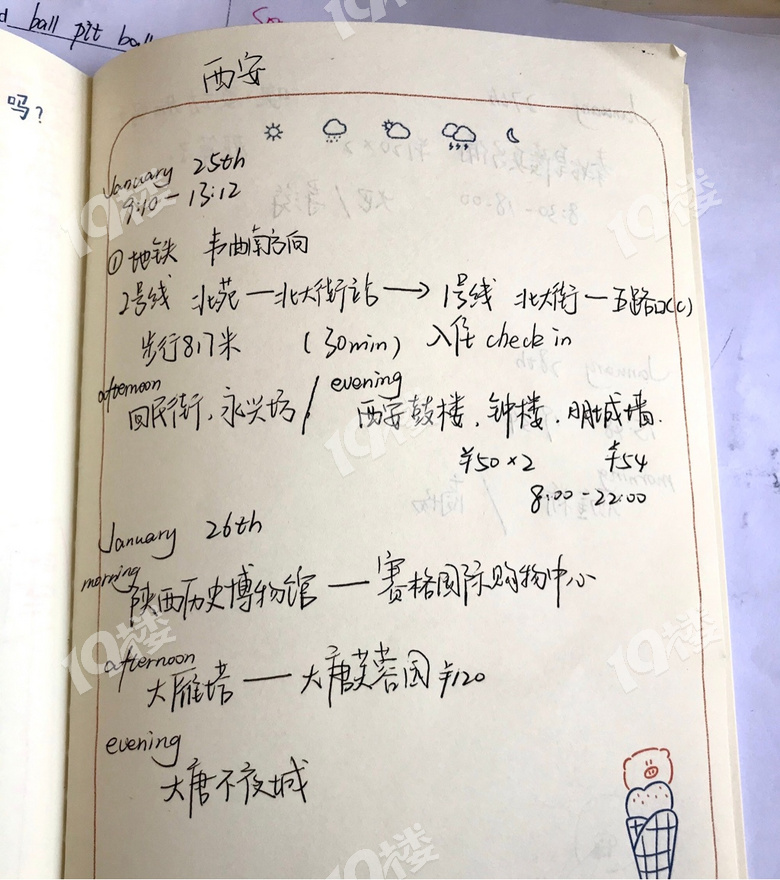 d ball pit ball
吗?
西安
January 25th
9:10-13:12
①地铁 韦曲南方向
2号线 北苑—北大街站→1号线 北大街—五路口(C)
步行817米 (30min) 入住 check in
afternoon 回民街,永兴坊/evening 西安鼓楼,钟楼,明城墙.
¥50×2 ¥54
8:00-22:00
January 26th
morning 陕西历史博物馆—赛格国际购物中心
afternoon 大雁塔—大唐芙蓉园 ¥120
evening
大唐不夜城
19楼